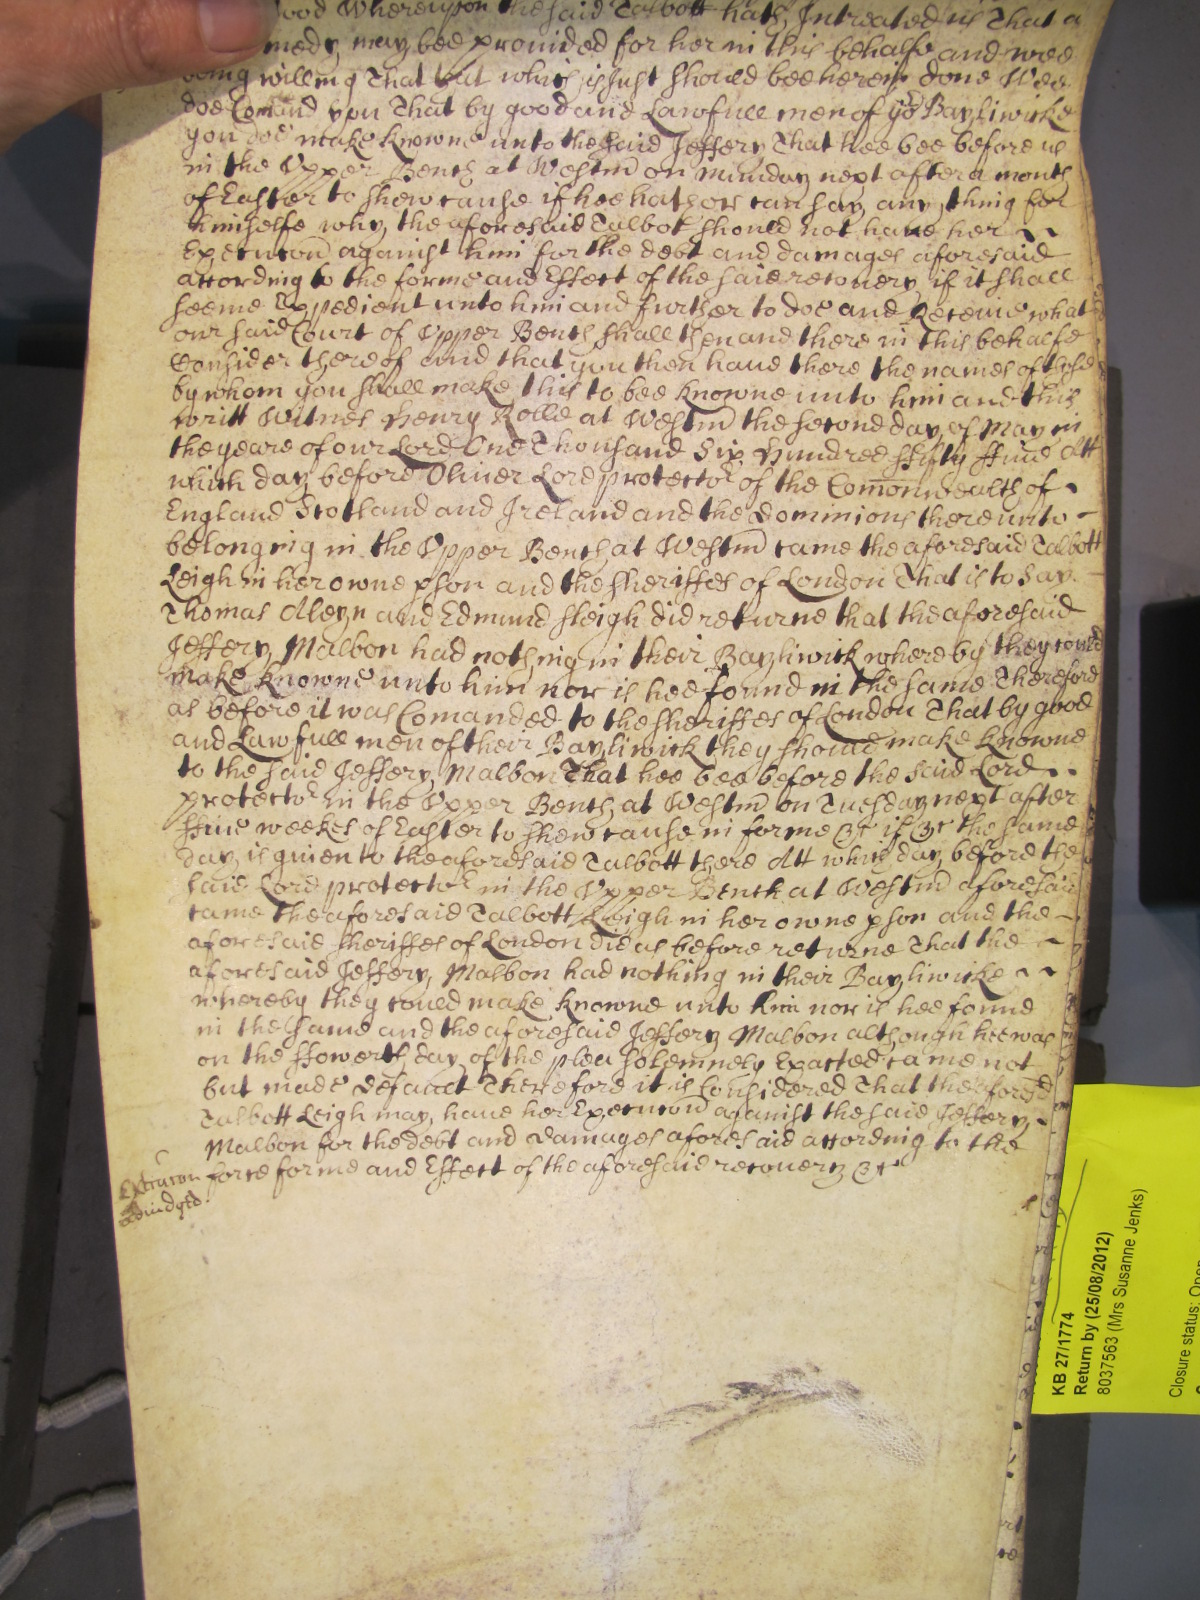 Whereupon the said Talbott hath Intreated us That a
medy may bee provided for her in this behalfe and wee
being willing That that which is Just should bee herein done Wee
doe Comand you That by good and Lawfull men of yor Bayliwicke
you doe make knowne unto the said Jeffery That hee bee before us
in the Upper Bench at Westm on Munday next after a month
of Easter to shew cause if hee hath or can say any thing for
himselfe why the aforesaid Talbott should not have her
Execucon against him for the debt and damages aforesaid
according to the forme and Effect of the said recovery if it shall
seeme Expedient unto him and further to doe and Receive what
our said Court of Upper Bench shall then and there in this behalfe
Consider thereof and that you then have there the names of those
by whom you shall make this to bee knowne unto him and this
writt Witnes Henry Rolle at Westm the second day of May in
the yeare of our Lord One Thousand Six Hundred ffifty ffive Att
which day before Oliver Lord protector of the Comonwealth of
England Scotland and Ireland and the Dominions thereunto
belonging in the Upper Bench at Westm came the aforesaid Talbott
Leigh in her owne pson and the sheriffes of London That is to say
Thomas Aleyn and Edmund Sleigh did returne that the aforesaid
Jeffery Malbon had nothing in their Bayliwick where by they could
make knowne unto him nor is hee found in the same Therefore
as before it was Comanded to the sheriffes of London That by good
and Lawfull men of their Bayliwick they should make knowne
to the said Jeffery Malbon That hee bee before the said Lord
protector in the Upper Bench at Westm on Tuesday next after
ffive weekes of Easter to shew cause in forme &c if &c the same
day is given to the aforesaid Talbott there Att which day before the
said Lord protector in the Upper Bench at Westm aforesaid
came the aforesaid Talbott Leigh in her owne pson and the
aforesaid sheriffes of London did as before returne That the
aforesaid Jeffery Malbon had nothing in their Bayliwicke
whereby they could make knowne unto him nor is hee found
in the same and the aforesaid Jeffery Malbon although hee was
on the ffowerth day of the plea solemnely Exacted came not
but made default Therefore it is Considered That the aforesd
Talbott Leigh may have her Execucon against the said Jeffery
Malbon for the debt and damages aforesaid according to the
force forme and Effect of the aforesaid recovery &c
Execucon
adiudged
KB 27/1774
Return by (25/08/2012)
8037563 (Mrs Susanne Jenks)
Closure status: Open